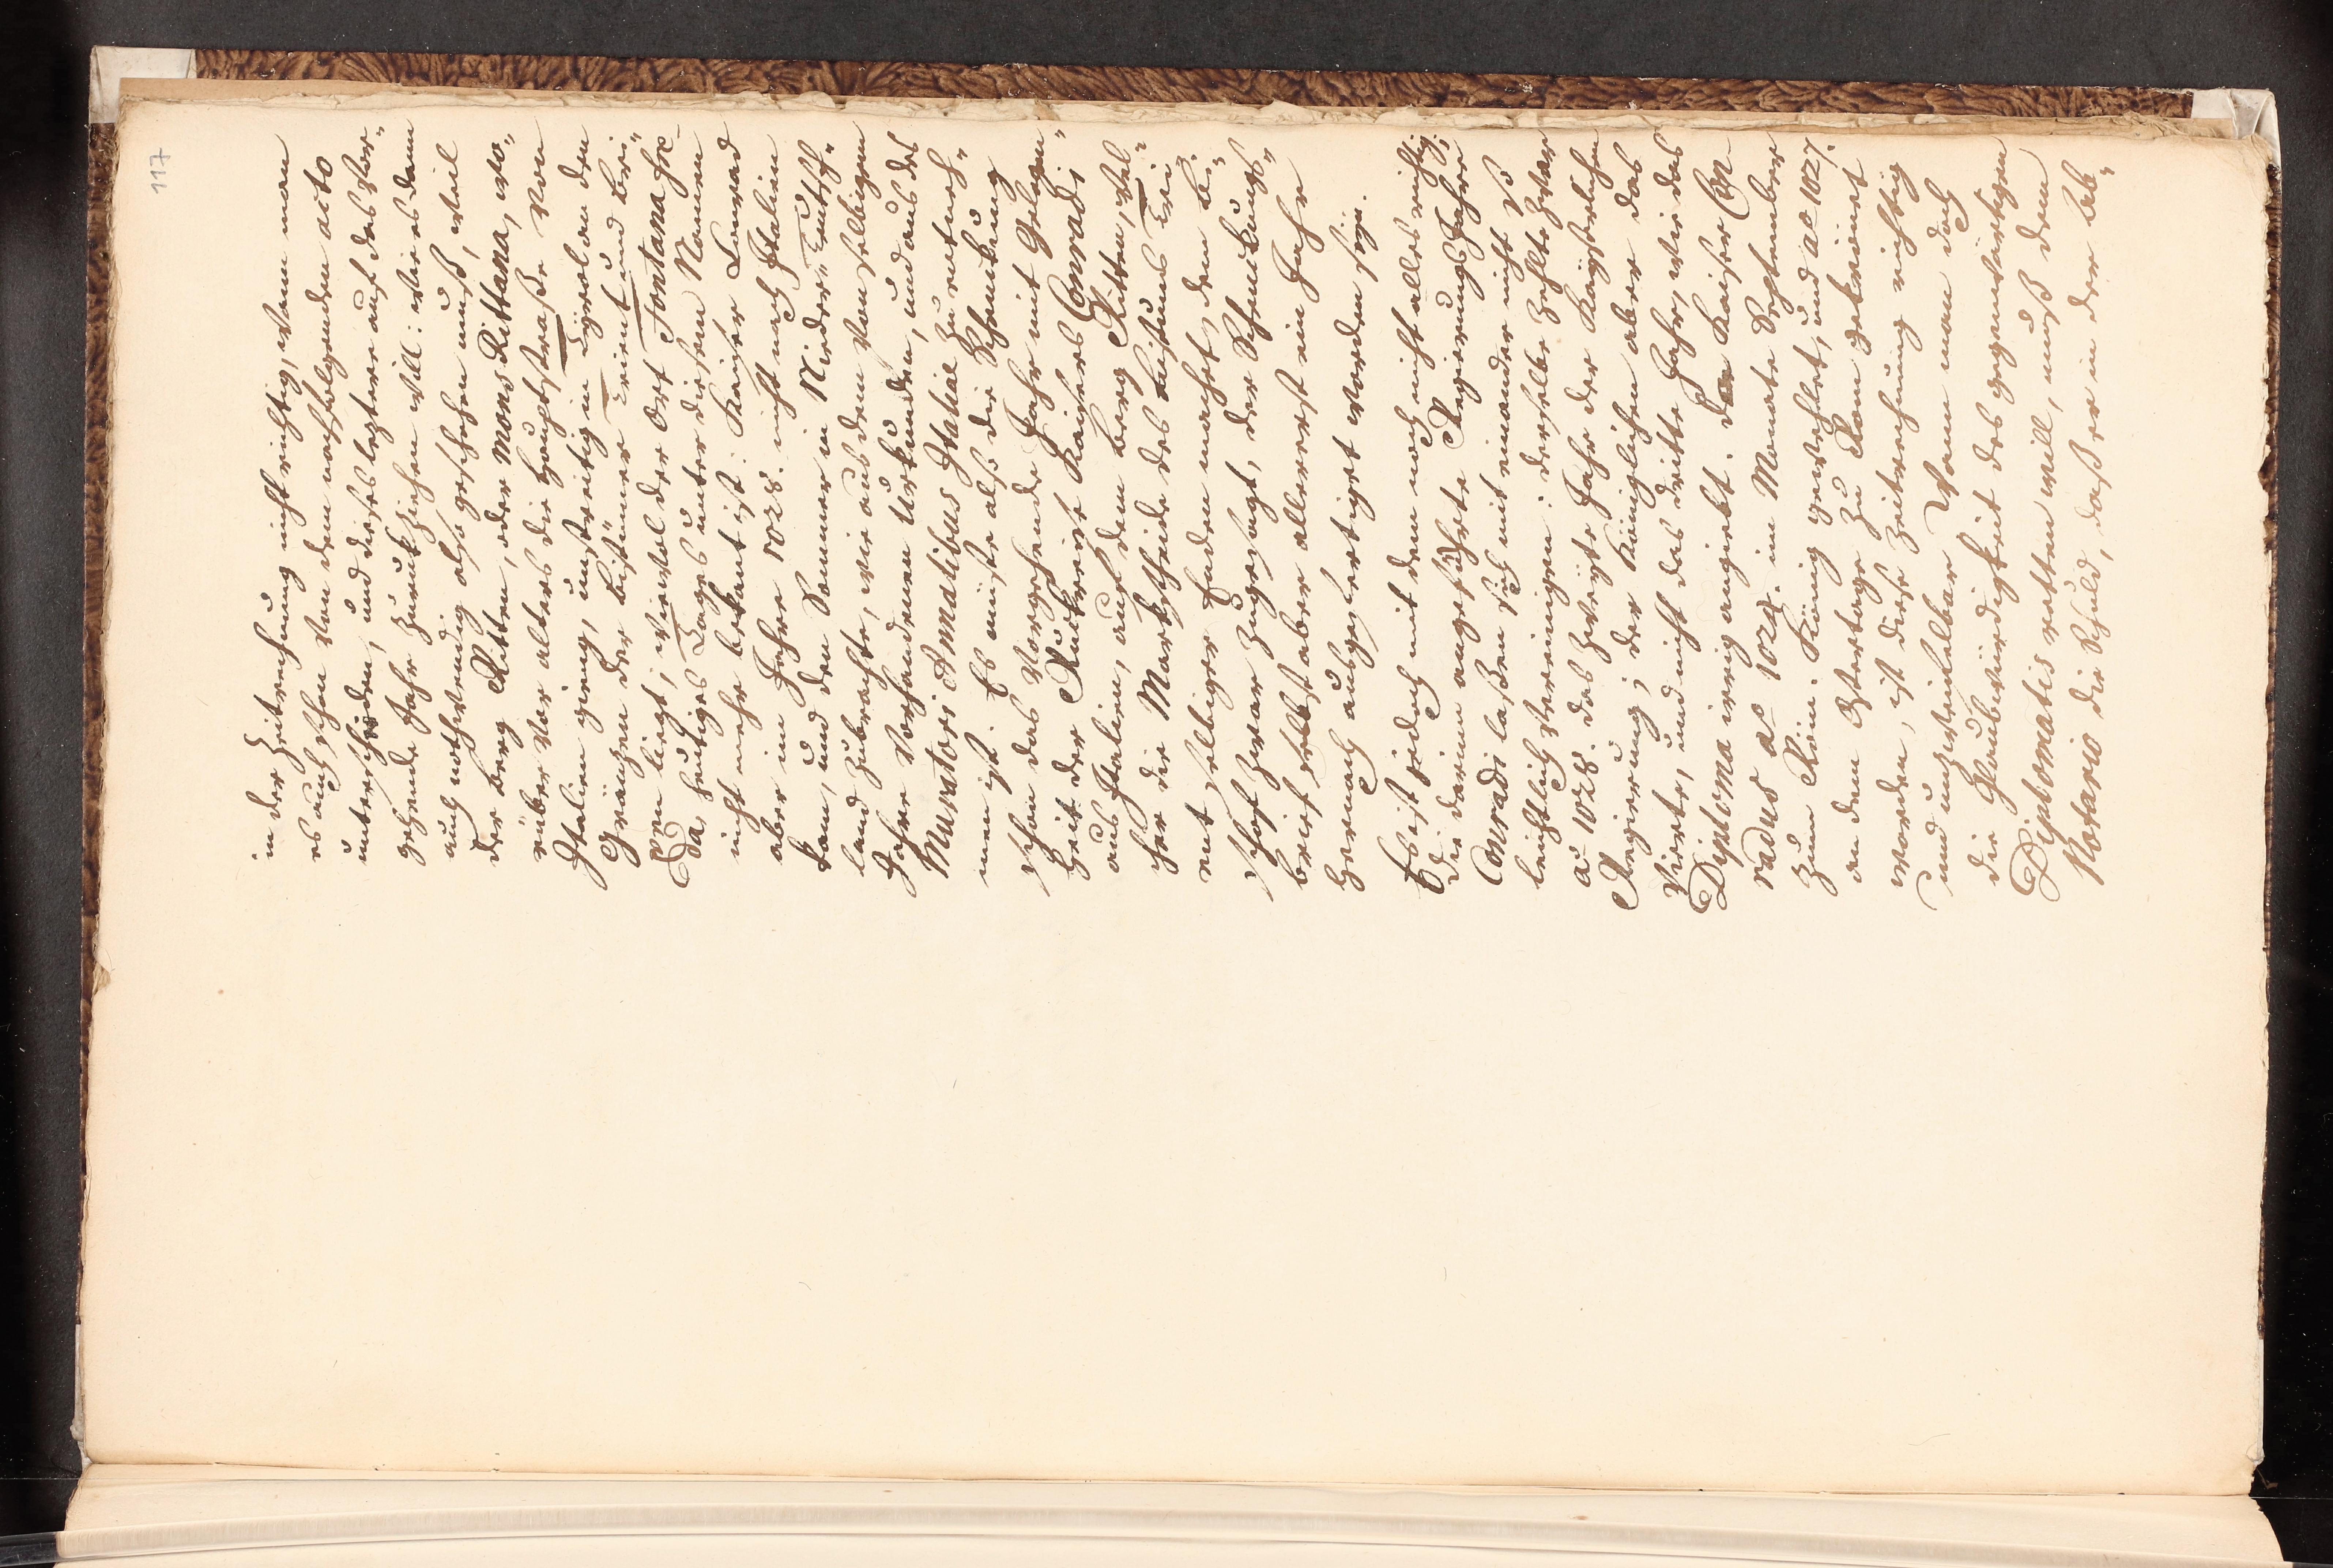 117
in der Zeitrechnung nicht richtig, wann man
es auch schon von dem nachfolgenden acto
unterschieden, und dieses leztere auf das vor¬
gehende Jahr zurukziehen will: wie es dann
auch nothwendig also geschehen muß, weil
der berg Ritten, oder Mons Rittana, wo¬
rüber vor alters die Hauptstrasse von
Italien gieng, unstreitig in Tÿrol an den
Gränzen der bistümer Trient und bri¬
xen liegt; wiewol der Ort Fontana fri-
da, heutiges Tages unter diesem Namen
nicht mehr bekant ist: Kaiser Conrad
aber im Jahre 1028. nicht nach Italien
kam, und den Sommer in Nieder-Teutsch¬
land zubrachte, wie aus dem von selbigem
Jahre vorhandenen Urkunden, und aus des
Muratori Annalibus Italiae zu erseh¬
nen ist. Es müste also die Schankung
schon das vorgehende Jahr mit Gelegen¬
heit der Rükreise Kaisers Conradi
aus Italien, auf dem berg Ritten, wel¬
cher die Markscheide des bistums Tri¬
ent selbiger Enden machet, dem bi¬
schof zwar zugesagt, der Schenkungs¬
brief selbst aber allererst ein Jahr
hernach ausgefertiget worden seÿn.
Es ist jedoch mit dem noch nicht alles richtig;
die darinn angeführte Regierungs Jahre
Conradi laßen sich mit einander nicht so
leichtlich vereinigen: derselbe zehlte zwar
aō 1028. das zweÿte Jahr der Kaÿserlichen
Regierung; der Königlichen aber das
vierte, und nicht das dritte Jahr, wie das
Diploma irrig angiebt. Der Kaiser Con-
radus aō 1024. im Monate September
zum Röm. König gewehlet, und aō 1027.
an dem Ostertage zu Rom gekrönet
worden, ist diese Zeitrechnung richtig
und unzweifelbar. Wann man doch
die Glaubwürdigkeit des gegenwärtigen
Diplomatis retten will, muß dem
Notario die Schuld, daß er in der Ab¬